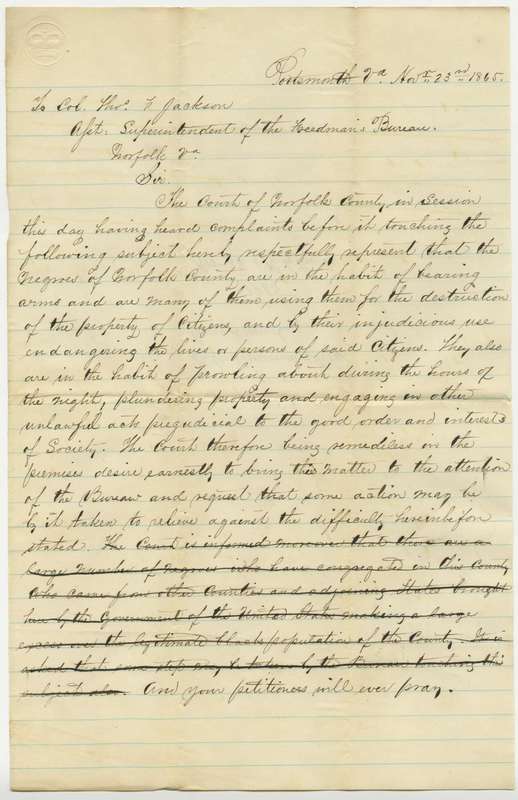 Portsmouth Va. Novr. 23rd 1865.
To Col. Thos. H Jackson
Asst. Superintendent of the Freedman's Bureau.
Norfolk Va
Sir.
The Court of Norfolk County in Session
this day having heard complaints before it touching the
following subject hereby respectfully represent that the
Negroes of Norfolk County are in the habit of bearing
arms and are many of them using them for the destruction
of the property of Citizens, and by their injudicious use
endangering the lives or persons of said Citizens. They also
are in the habit of prowling about during the hours of
the night, plundering property and engaging in other
unlawful acts prejudicial to the good order and interests
of Society. The Court therefore being remediless in the
premises desire earnestly to bring this matter to the attention
of the Bureau and request that some action may be
by it taken to relieve against the difficulty hereinbefore
stated. The Court is informed moreover that there are a
large number of negroes who have congregated in this County
who came from other Counties and adjoining States brought
here by the Government of the United States making a large
excess over the legitimate black population of the County. It is
asked that some steps may be taken by the Bureau touching this
subject also. And your petitioners will ever pray.